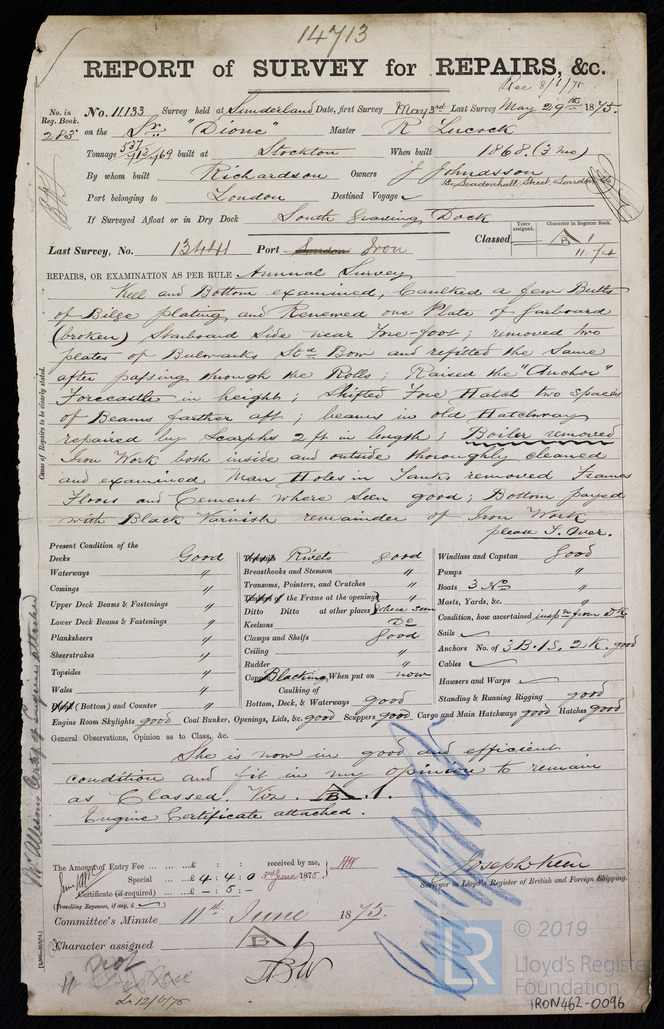 14713
REPORT of SURVEY for REPAIRS, &c.
Rec 8/6/75
No. in Reg. Book. No. 11133 Survey held at Sunderland Date, first Survey May 3rd Last Survey May 29th 1875.
285 on the Sr. "Dione" Master R Lucock
Tonnage 537/413/469 built at Stockton When built 1868. (3 mo)
By whom built Richardson Owners J Johnasson
Leadenhall Street, London
Port belonging to London Destined Voyage
If Surveyed Afloat or in Dry Dock South Graving Dock
Years assigned. Character in Register Book.
Last Survey, No. 13441 Port London Iron Classed B 1
11.74
REPAIRS, OR EXAMINATION AS PER RULE Annual Survey
Keel and Bottom examined, Caulked a few Butts
of Bilge plating and Renewed one Plate of Garboard
(broken) Starboard Side near Fore-foot; removed two
plates of Bulwarks Std Bow and refitted the Same
after passing through the Rolls; Raised the "Anchor"
Forecastle in height; Shifted Fore Hatch two Spaces
of Beams farther aft; beams in old Hatchway
repaired by Scarphs 2 ft in length; Boiler removed
Iron Work both inside and outside thoroughly cleaned
and examined Man Holes in Tanks removed Frames
Floors and Cement where seen good; Bottom payed
with Black Varnish remainder of Iron Work
please T. Over.
Cause of Repairs to be clearly stated.
Present Condition of the
Decks Good
Waterways "
Comings "
Upper Deck Beams & Fastenings "
Lower Deck Beams & Fastenings "
Planksheers "
Sheerstrakes "
Topsides "
Wales "
(Bottom) and Counter "
Rivets good
Breasthooks and Stemson "
Transoms, Pointers, and Crutches "
of the Frame at the openings
Ditto Ditto at other places where seen
Keelsons Do
Clamps and Shelfs Good
Ceiling "
Rudder "
Blacking, When put on now
Caulking of
Bottom, Deck, & Waterways good
Windlass and Capstan Good
Pumps "
Boats 3 No "
Masts, Yards, &c. "
Condition, how ascertained inspn from Dk
Sails
Anchors No. of 3 B. 1 S. 2 K. good
Cables
Hawsers and Warps
Standing & Running Rigging good
Engine Room Skylights good Coal Bunker, Openings, Lids, &c. good Scuppers good Cargo and Main Hatchways good Hatches good
General Observations, Opinion as to Class, &c.
She is now in good and efficient
condition and fit in my opinion to remain
as Classed. Viz. B. 1.
Engine Certificate attached.
The Amount of Entry Fee ... £ : : received by me,
Special ... £ 4 : 4 : 0 3rd June 1875
Certificate (if required) ... £ - : 5 : -
(Travelling Expenses, if any, £ )
Joseph Keen
Surveyor to Lloyd's Register of British and Foreign Shipping.
Committee's Minute 11th June 1875.
Character assigned B 1
not
Lr 12/6/75
© 2019
LR
Lloyd's Register
Foundation
IRON462-0096